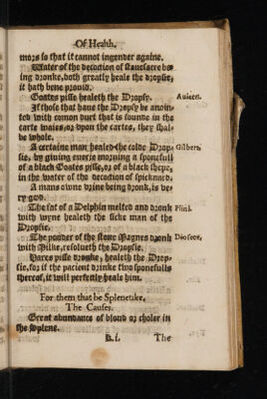 Of Health.
mors so that it cannot ingender againe.
Water of the decoction of Saunders be-
ing dronke, doth greatly heale the dropsie,
it hath bene prouid.
Goates pisse healeth the Dropsy. Auicen.
If those that haue the Dropsy be anoin-
ted with comon durt that is founde in the
carte waies, or vpon the cartes, they shal
be whole.
A certaine man healed the colde Drop- Gilbert.
sie, by giuing euerie morning a sponefull
of a black Goates pisse, or of a black shepe,
in the water of the decoction of spicknard.
A mans owne vrine being dronk, is ve-
ry good.
The fat of a Delphin melted and dronk Plini.
with wyne healeth the sicke man of the
Dropsie.
The pouder of the stone Magnes dronk Dioscor.
with Milke, resolueth the Dropsie.
Hares pisse dronke, healeth the Drop-
sie, for if the pacient drinke two sponefulls
thereof, it will perfectly heale him.
For them that be Splenetike.
The Causes.
Great abundance of bloud or choler in
the Splene.
The